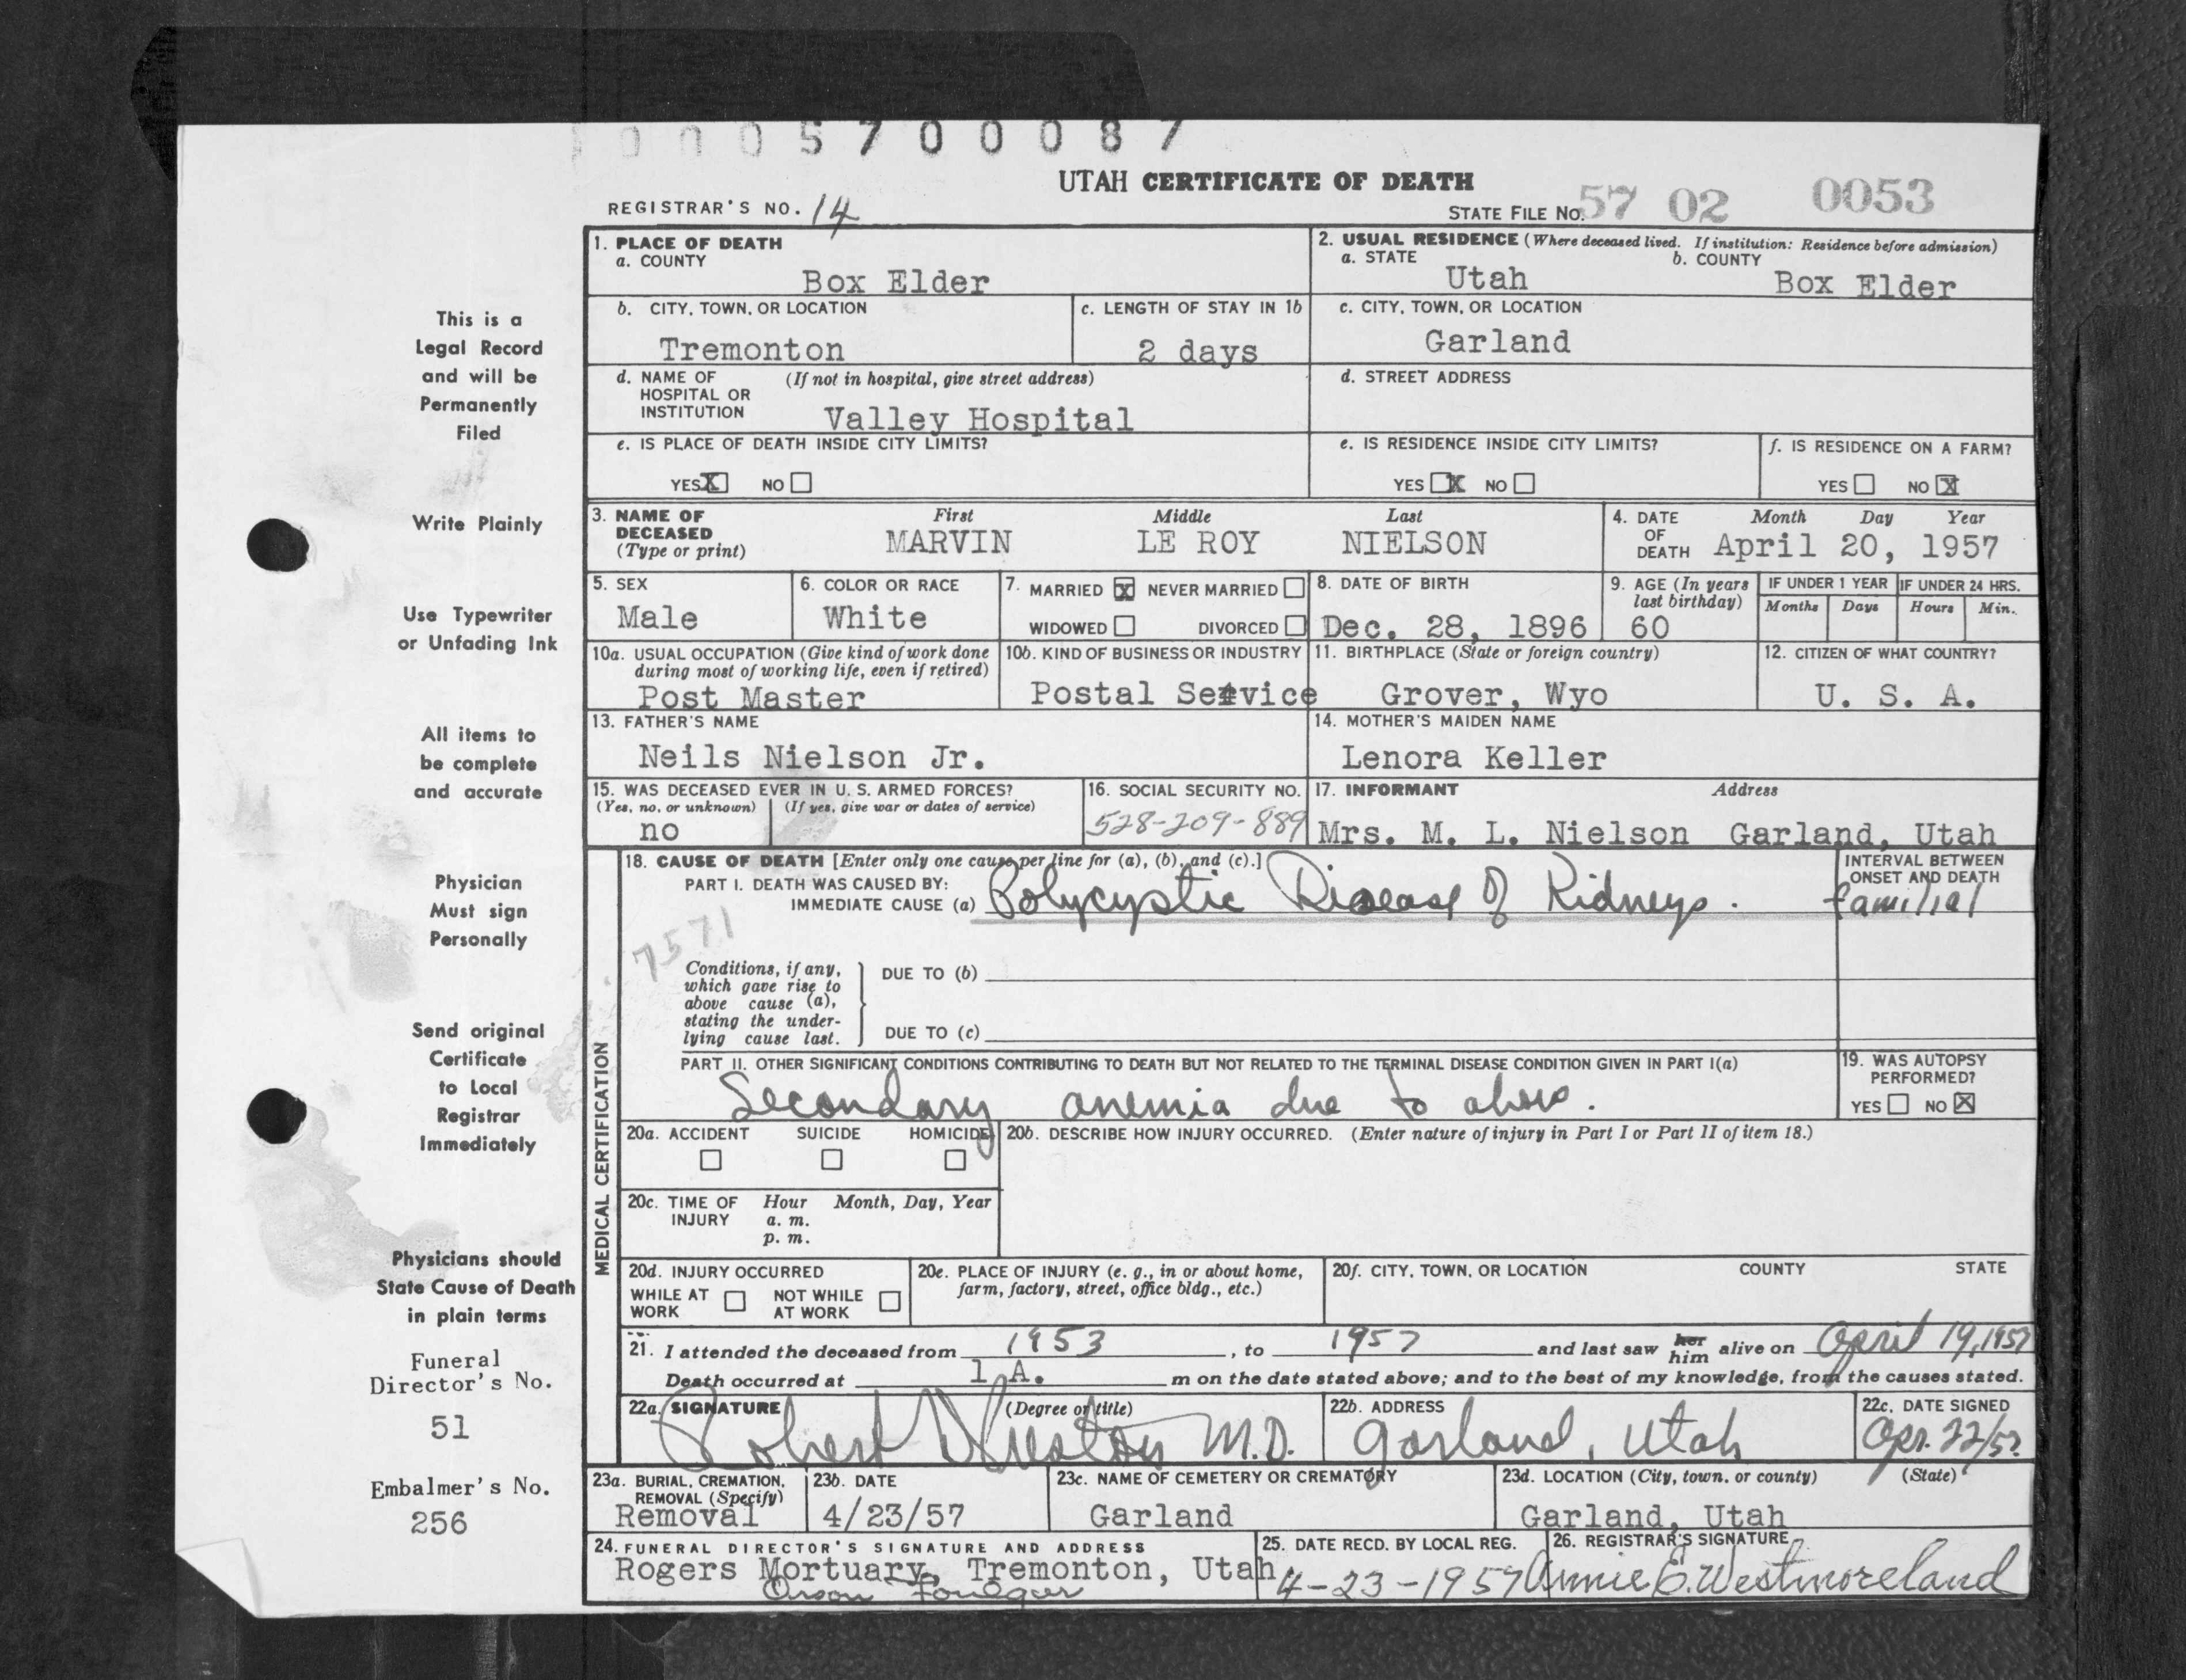 0005700087
UTAH CERTIFICATE OF DEATH
REGISTRAR'S NO. 14
STATE FILE NO. 57 02 0053
This is a
Legal Record
and will be
Permanently
Filed
Write Plainly
Use Typewriter
or Unfading Ink
All items to
be complete
and accurate
Physician
Must sign
Personally
Send original
Certificate
to Local
Registrar
Immediately
Physicians should
State Cause of Death
in plain terms
Funeral
Director's No.
51
Embalmer's No.
256
1. PLACE OF DEATH
a. COUNTY
Box Elder
2. USUAL RESIDENCE (Where deceased lived. If institution: Residence before admission)
a. STATE
Utah
b. COUNTY
Box Elder
b. CITY, TOWN, OR LOCATION
Tremonton
c. LENGTH OF STAY IN 1b
2 days
c. CITY, TOWN, OR LOCATION
Garland
d. NAME OF (If not in hospital, give street address)
HOSPITAL OR
INSTITUTION Valley Hospital
d. STREET ADDRESS
e. IS PLACE OF DEATH INSIDE CITY LIMITS?
YES X NO
e. IS RESIDENCE INSIDE CITY LIMITS?
YES X NO
f. IS RESIDENCE ON A FARM?
YES NO X
3. NAME OF DECEASED (Type or print)
First Middle Last
MARVIN LE ROY NIELSON
4. DATE OF DEATH
Month Day Year
April 20, 1957
5. SEX
Male
6. COLOR OR RACE
White
7. MARRIED X NEVER MARRIED
WIDOWED DIVORCED
8. DATE OF BIRTH
Dec. 28, 1896
9. AGE (In years last birthday)
60
IF UNDER 1 YEAR
Months Days
IF UNDER 24 HRS.
Hours Min.
10a. USUAL OCCUPATION (Give kind of work done
during most of working life, even if retired)
Post Master
10b. KIND OF BUSINESS OR INDUSTRY
Postal Service
11. BIRTHPLACE (State or foreign country)
Grover, Wyo
12. CITIZEN OF WHAT COUNTRY?
U. S. A.
13. FATHER'S NAME
Neils Nielson Jr.
14. MOTHER'S MAIDEN NAME
Lenora Keller
15. WAS DECEASED EVER IN U. S. ARMED FORCES?
(Yes, no, or unknown) (If yes, give war or dates of service)
no
16. SOCIAL SECURITY NO.
528-209-889
17. INFORMANT Address
Mrs. M. L. Nielson Garland, Utah
MEDICAL CERTIFICATION
18. CAUSE OF DEATH [Enter only one cause per line for (a), (b), and (c).]
PART I. DEATH WAS CAUSED BY:
IMMEDIATE CAUSE (a) Polycystic Disease of Kidneys.
INTERVAL BETWEEN
ONSET AND DEATH
familial
7571
Conditions, if any,
which gave rise to
above cause (a),
stating the under-
lying cause last.
DUE TO (b)
DUE TO (c)
PART II. OTHER SIGNIFICANT CONDITIONS CONTRIBUTING TO DEATH BUT NOT RELATED TO THE TERMINAL DISEASE CONDITION GIVEN IN PART I(a)
Secondary anemia due to above.
19. WAS AUTOPSY
PERFORMED?
YES NO X
20a. ACCIDENT SUICIDE HOMICIDE
20b. DESCRIBE HOW INJURY OCCURRED. (Enter nature of injury in Part I or Part II of item 18.)
20c. TIME OF INJURY
Hour Month, Day, Year
a. m.
p. m.
20d. INJURY OCCURRED
WHILE AT WORK NOT WHILE AT WORK
20e. PLACE OF INJURY (e. g., in or about home,
farm, factory, street, office bldg., etc.)
20f. CITY, TOWN, OR LOCATION COUNTY STATE
21. I attended the deceased from 1953, to 1957 and last saw her him alive on April 19, 1957
Death occurred at 1 A. m on the date stated above; and to the best of my knowledge, from the causes stated.
22a. SIGNATURE (Degree or title)
Robert M.D.
22b. ADDRESS
Garland, Utah
22c. DATE SIGNED
Apr. 22/57
23a. BURIAL, CREMATION,
REMOVAL (Specify)
Removal
23b. DATE
4/23/57
23c. NAME OF CEMETERY OR CREMATORY
Garland
23d. LOCATION (City, town, or county) (State)
Garland, Utah
24. FUNERAL DIRECTOR'S SIGNATURE AND ADDRESS
Rogers Mortuary, Tremonton, Utah
Orson Foulger
25. DATE RECD. BY LOCAL REG.
4-23-1957
26. REGISTRAR'S SIGNATURE
Annie E. Westmoreland